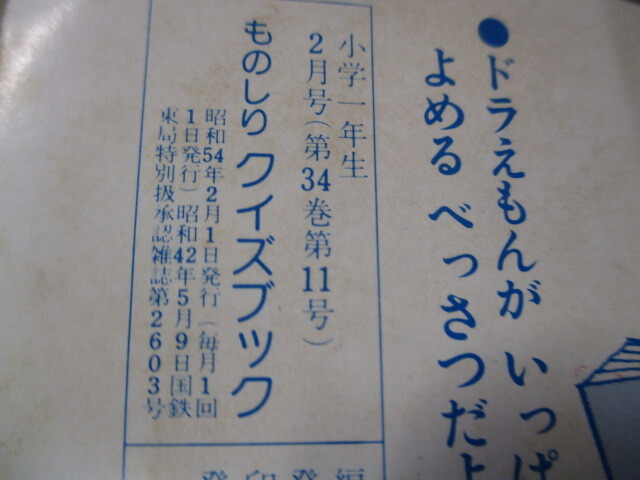 ●ドラえもんが いっぱ
よめる べっさつだよ
小学一年生
2月号(第34巻第11号)
ものしりクイズブック
昭和54年2月1日発行(毎月1回
1日発行)昭和42年5月9日国鉄
東局特別扱承認雑誌第2603号
編
発
印
発